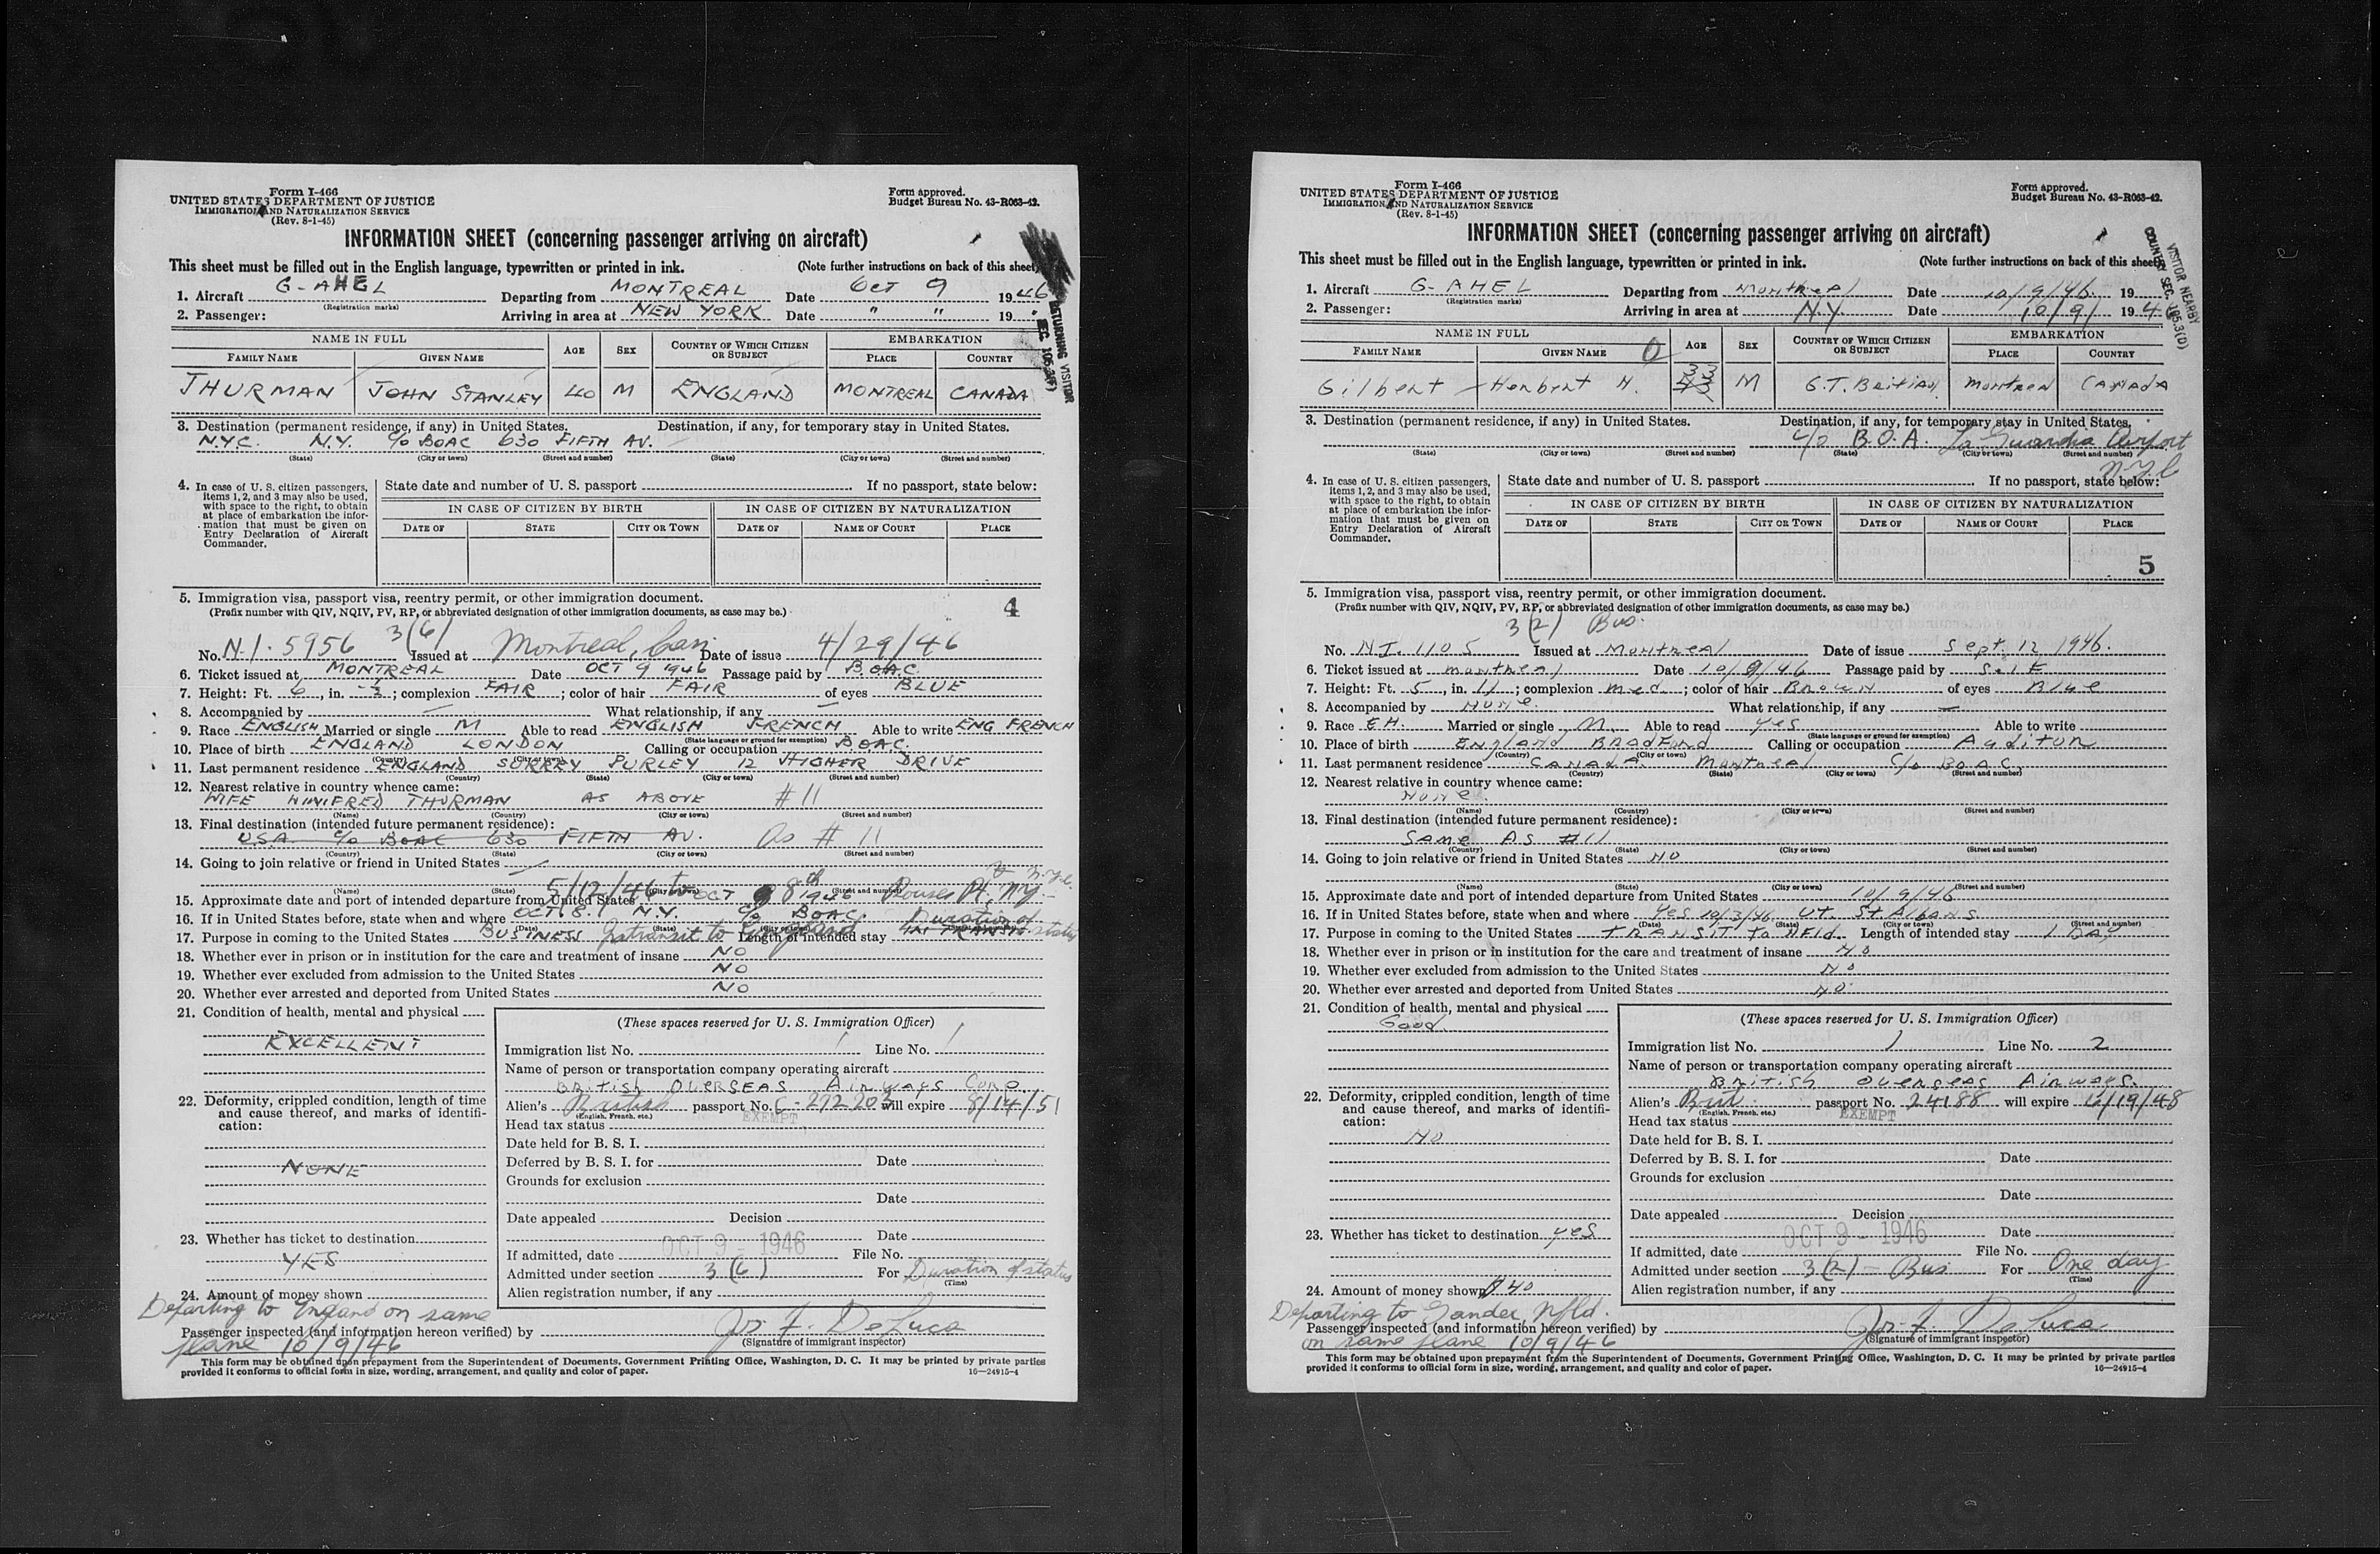 Form I-466
UNITED STATES DEPARTMENT OF JUSTICE
IMMIGRATION AND NATURALIZATION SERVICE
(Rev. 8-1-45)
Form approved.
Budget Bureau No. 43-R063-42.
INFORMATION SHEET (concerning passenger arriving on aircraft)
This sheet must be filled out in the English language, typewritten or printed in ink. (Note further instructions on back of this sheet)
RETURNING VISITOR
1. Aircraft G-AHEL Departing from MONTREAL Date OCT 9 1946
(Registration marks)
2. Passenger: Arriving in area at NEW YORK Date " " 19 "
NAME IN FULL AGE SEX COUNTRY OF WHICH CITIZEN OR SUBJECT EMBARKATION
FAMILY NAME GIVEN NAME PLACE COUNTRY
THURMAN JOHN STANLEY 40 M ENGLAND MONTREAL CANADA
3. Destination (permanent residence, if any) in United States. Destination, if any, for temporary stay in United States.
N.Y.C. N.Y. C/O BOAC 630 FIFTH AV.
(State) (City or town) (Street and number) (State) (City or town) (Street and number)
4. In case of U. S. citizen passengers, items 1, 2, and 3 may also be used, with space to the right, to obtain at place of embarkation the information that must be given on Entry Declaration of Aircraft Commander.
State date and number of U. S. passport If no passport, state below:
IN CASE OF CITIZEN BY BIRTH IN CASE OF CITIZEN BY NATURALIZATION
DATE OF STATE CITY OR TOWN DATE OF NAME OF COURT PLACE
5. Immigration visa, passport visa, reentry permit, or other immigration document. 4
(Prefix number with QIV, NQIV, PV, RP, or abbreviated designation of other immigration documents, as case may be.)
No. N.I. 5956 3(6) Issued at Montreal, Can. Date of issue 4/29/46
6. Ticket issued at MONTREAL Date OCT 9 1946 Passage paid by B.O.A.C.
7. Height: Ft. 6, in. -½; complexion FAIR; color of hair FAIR of eyes BLUE
8. Accompanied by — What relationship, if any —
9. Race ENGLISH Married or single M Able to read ENGLISH FRENCH Able to write ENG FRENCH
(State language or ground for exemption)
10. Place of birth ENGLAND LONDON Calling or occupation BOAC
(Country) (City or town)
11. Last permanent residence ENGLAND SURREY PURLEY 12 HIGHER DRIVE
(Country) (State) (City or town) (Street and number)
12. Nearest relative in country whence came:
WIFE WINIFRED THURMAN AS ABOVE #11
(Name) (Country) (City or town) (Street and number)
13. Final destination (intended future permanent residence):
USA C/O BOAC 630 FIFTH AV. As #11
(Country) (State) (City or town) (Street and number)
14. Going to join relative or friend in United States —
(Name) (State) (City or town) (Street and number)
5/12/46 to 8th Rouses Pt. N.Y.
15. Approximate date and port of intended departure from United States OCT 9 1946
16. If in United States before, state when and where OCT 8. N.Y. C/O BOAC
(Date) (State) (City or town)
17. Purpose in coming to the United States BUSINESS In transit to England Length of intended stay IN TRANSIT Duration of status
18. Whether ever in prison or in institution for the care and treatment of insane NO
19. Whether ever excluded from admission to the United States NO
20. Whether ever arrested and deported from United States NO
21. Condition of health, mental and physical
EXCELLENT
22. Deformity, crippled condition, length of time and cause thereof, and marks of identification:
NONE
23. Whether has ticket to destination
YES
24. Amount of money shown
(These spaces reserved for U. S. Immigration Officer)
Immigration list No. 1 Line No. 1
Name of person or transportation company operating aircraft
BRITISH OVERSEAS AIRWAYS CORP
Alien's British passport No. C-272203 will expire 8/14/51
(English, French, etc.)
Head tax status EXEMPT
Date held for B. S. I.
Deferred by B. S. I. for Date
Grounds for exclusion
Date
Date appealed Decision
Date
If admitted, date OCT 9 - 1946 File No.
Admitted under section 3(6) For Duration of status
(Time)
Alien registration number, if any
Departing to England on same
Passenger inspected (and information hereon verified) by Js. F. DeLuca
plane 10/9/46 (Signature of immigrant inspector)
This form may be obtained upon prepayment from the Superintendent of Documents, Government Printing Office, Washington, D. C. It may be printed by private parties
provided it conforms to official form in size, wording, arrangement, and quality and color of paper. 16—24915-4
Form I-466
UNITED STATES DEPARTMENT OF JUSTICE
IMMIGRATION AND NATURALIZATION SERVICE
(Rev. 8-1-45)
Form approved.
Budget Bureau No. 43-R063-42.
INFORMATION SHEET (concerning passenger arriving on aircraft)
This sheet must be filled out in the English language, typewritten or printed in ink. (Note further instructions on back of this sheet)
VISITOR NEARBY
COUNTRY SEC.
1. Aircraft G-AHEL Departing from Montreal Date 10/9/46 19
(Registration marks)
2. Passenger: Arriving in area at N.Y. Date 10/9/ 1946
NAME IN FULL AGE SEX COUNTRY OF WHICH CITIZEN OR SUBJECT EMBARKATION
FAMILY NAME GIVEN NAME PLACE COUNTRY
Gilbert Herbert H. 33 M G.T. Britian Montreal CANADA
3. Destination (permanent residence, if any) in United States. Destination, if any, for temporary stay in United States.
c/o B.O.A. La Guardia Airport
N.Y.C
(State) (City or town) (Street and number) (State) (City or town) (Street and number)
4. In case of U. S. citizen passengers, items 1, 2, and 3 may also be used, with space to the right, to obtain at place of embarkation the information that must be given on Entry Declaration of Aircraft Commander.
State date and number of U. S. passport If no passport, state below:
IN CASE OF CITIZEN BY BIRTH IN CASE OF CITIZEN BY NATURALIZATION
DATE OF STATE CITY OR TOWN DATE OF NAME OF COURT PLACE
5
5. Immigration visa, passport visa, reentry permit, or other immigration document.
(Prefix number with QIV, NQIV, PV, RP, or abbreviated designation of other immigration documents, as case may be.)
3(2) Bus.
No. NI. 1105 Issued at Montreal Date of issue Sept. 12 1946.
6. Ticket issued at Montreal Date 10/9/46 Passage paid by Self
7. Height: Ft. 5, in. 11; complexion Med.; color of hair Brown of eyes Blue
8. Accompanied by None. What relationship, if any —
9. Race EH. Married or single M Able to read yes Able to write
(State language or ground for exemption)
10. Place of birth England Bradford Calling or occupation Auditor
(Country) (City or town)
11. Last permanent residence CANADA. Montreal C/o BOAC.
(Country) (State) (City or town) (Street and number)
12. Nearest relative in country whence came:
None.
(Name) (Country) (City or town) (Street and number)
13. Final destination (intended future permanent residence):
Same AS #11
(Country) (State) (City or town) (Street and number)
14. Going to join relative or friend in United States NO
(Name) (State) (City or town) (Street and number)
15. Approximate date and port of intended departure from United States 10/9/46
16. If in United States before, state when and where Yes 10/3/46 VT. St Albans
(Date) (State) (City or town) (Street and number)
17. Purpose in coming to the United States TRANSIT to NFld. Length of intended stay 1 DAY
18. Whether ever in prison or in institution for the care and treatment of insane NO
19. Whether ever excluded from admission to the United States NO
20. Whether ever arrested and deported from United States NO
21. Condition of health, mental and physical
Good.
22. Deformity, crippled condition, length of time and cause thereof, and marks of identification:
NO
23. Whether has ticket to destination yes
24. Amount of money shown $40
(These spaces reserved for U. S. Immigration Officer)
Immigration list No. 1 Line No. 2
Name of person or transportation company operating aircraft
British Overseas Airways.
Alien's Brit. passport No. 24188 will expire
(English, French, etc.)
Head tax status EXEMPT
Date held for B. S. I.
Deferred by B. S. I. for Date
Grounds for exclusion
Date
Date appealed Decision
Date
If admitted, date OCT 9 - 1946 File No.
Admitted under section 3(2) - Bus For One day
(Time)
Alien registration number, if any
Departing to Gander, Nfld.
Passenger inspected (and information hereon verified) by Js. F. DeLuca
on same plane 10/9/46 (Signature of immigrant inspector)
This form may be obtained upon prepayment from the Superintendent of Documents, Government Printing Office, Washington, D. C. It may be printed by private parties
provided it conforms to official form in size, wording, arrangement, and quality and color of paper. 16—24915-4